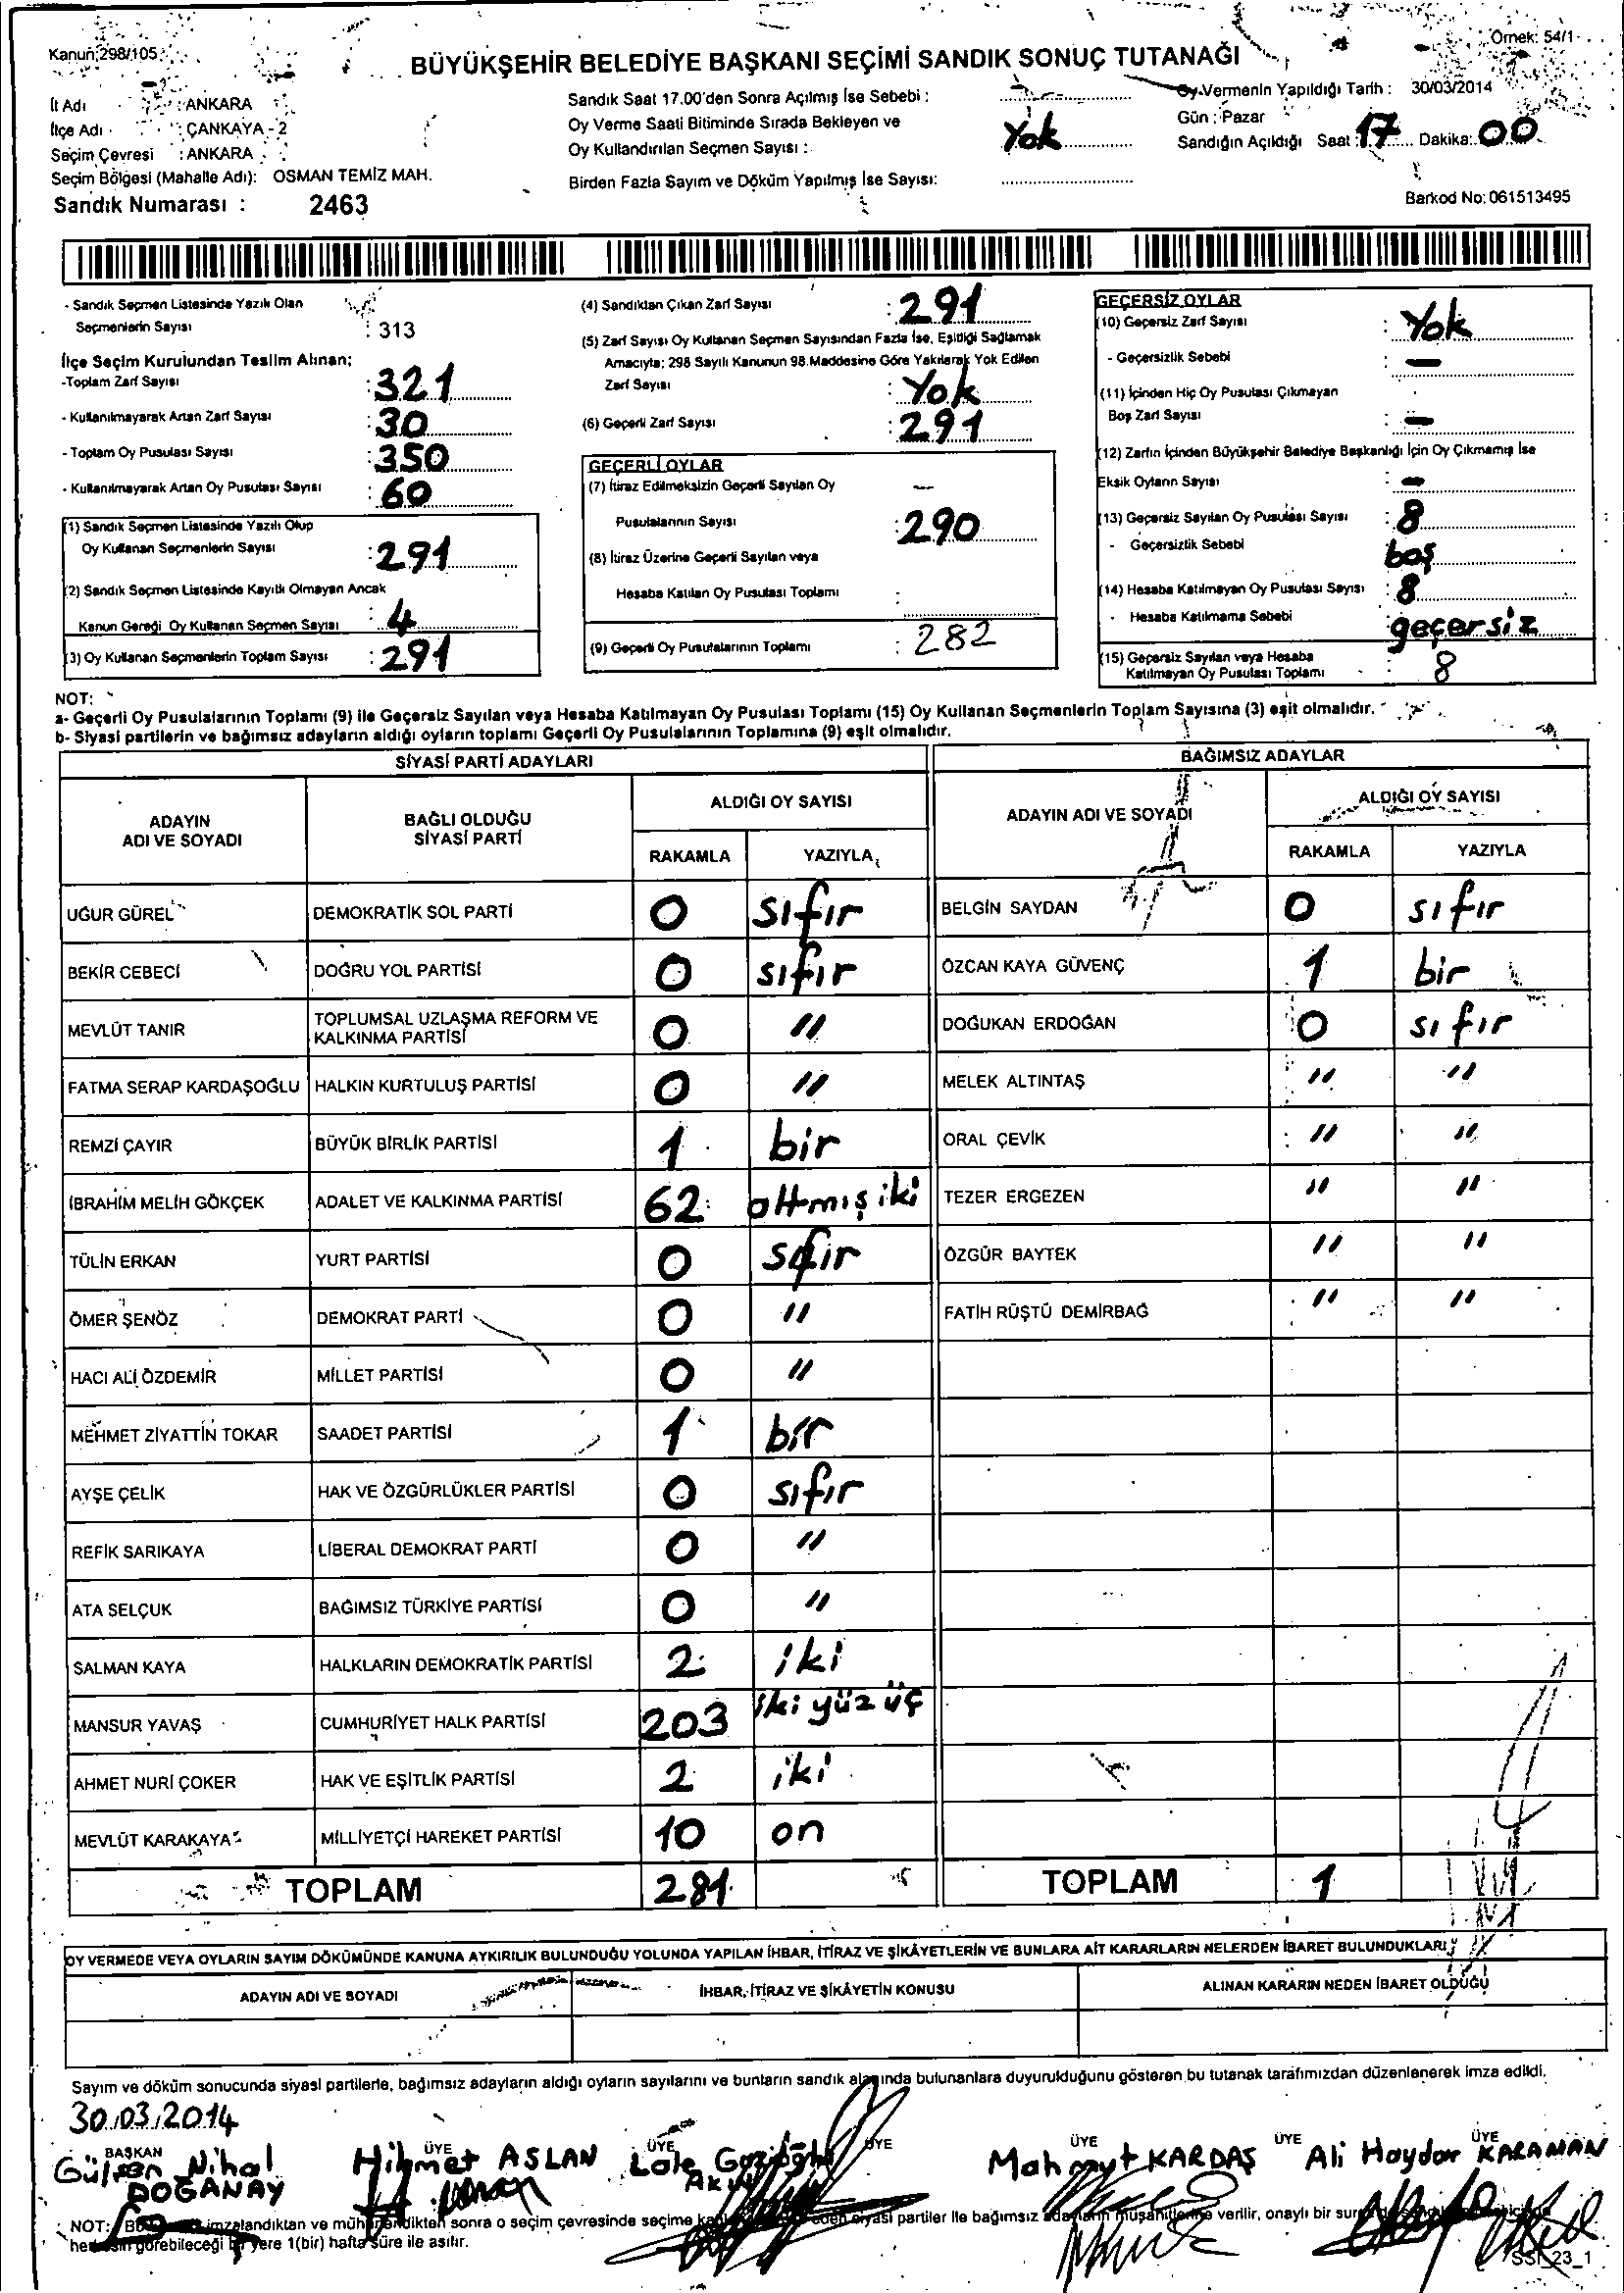 Kanun;298/105
Örnek: 54/1
BÜYÜKŞEHİR BELEDİYE BAŞKANI SEÇİMİ SANDIK SONUÇ TUTANAĞI
İl Adı : ANKARA
İlçe Adı : ÇANKAYA - 2
Seçim Çevresi : ANKARA
Seçim Bölgesi (Mahalle Adı): OSMAN TEMİZ MAH.
Sandık Numarası : 2463
Sandık Saat 17.00'den Sonra Açılmış İse Sebebi :
Oy Verme Saati Bitiminde Sırada Bekleyen ve
Oy Kullandırılan Seçmen Sayısı : Yok
Birden Fazla Sayım ve Döküm Yapılmış İse Sayısı:
Oy Vermenin Yapıldığı Tarih : 30/03/2014
Gün : Pazar
Sandığın Açıldığı Saat : 17 Dakika: 00
Barkod No: 061513495
- Sandık Seçmen Listesinde Yazılı Olan
Seçmenlerin Sayısı : 313
İlçe Seçim Kurulundan Teslim Alınan;
-Toplam Zarf Sayısı : 321
- Kullanılmayarak Artan Zarf Sayısı : 30
- Toplam Oy Pusulası Sayısı : 350
- Kullanılmayarak Artan Oy Pusulası Sayısı : 60
(1) Sandık Seçmen Listesinde Yazılı Olup
Oy Kullanan Seçmenlerin Sayısı : 291
(2) Sandık Seçmen Listesinde Kayıtlı Olmayan Ancak
Kanun Gereği Oy Kullanan Seçmen Sayısı : 4
(3) Oy Kullanan Seçmenlerin Toplam Sayısı : 291
(4) Sandıktan Çıkan Zarf Sayısı : 291
(5) Zarf Sayısı Oy Kullanan Seçmen Sayısından Fazla İse, Eşitliği Sağlamak
Amacıyla; 298 Sayılı Kanunun 98.Maddesine Göre Yakılarak Yok Edilen
Zarf Sayısı : Yok
(6) Geçerli Zarf Sayısı : 291
GEÇERLİ OYLAR
(7) İtiraz Edilmeksizin Geçerli Sayılan Oy —
Pusulalarının Sayısı : 290
(8) İtiraz Üzerine Geçerli Sayılan veya
Hesaba Katılan Oy Pusulası Toplamı :
(9) Geçerli Oy Pusulalarının Toplamı : 282
GEÇERSİZ OYLAR
(10) Geçersiz Zarf Sayısı : Yok
- Geçersizlik Sebebi : —
(11) İçinden Hiç Oy Pusulası Çıkmayan
Boş Zarf Sayısı : —
(12) Zarfın İçinden Büyükşehir Belediye Başkanlığı İçin Oy Çıkmamış İse
Eksik Oyların Sayısı : —
(13) Geçersiz Sayılan Oy Pusulası Sayısı : 8
- Geçersizlik Sebebi boş
(14) Hesaba Katılmayan Oy Pusulası Sayısı : 8
- Hesaba Katılmama Sebebi : geçersiz
(15) Geçersiz Sayılan veya Hesaba
Katılmayan Oy Pusulası Toplamı : 8
NOT:
a- Geçerli Oy Pusulalarının Toplamı (9) ile Geçersiz Sayılan veya Hesaba Katılmayan Oy Pusulası Toplamı (15) Oy Kullanan Seçmenlerin Toplam Sayısına (3) eşit olmalıdır.
b- Siyasi partilerin ve bağımsız adayların aldığı oyların toplamı Geçerli Oy Pusulalarının Toplamına (9) eşit olmalıdır.
SİYASİ PARTİ ADAYLARI BAĞIMSIZ ADAYLAR
ADAYIN
ADI VE SOYADI
BAĞLI OLDUĞU
SİYASİ PARTİ
ALDIĞI OY SAYISI
RAKAMLA YAZIYLA
ADAYIN ADI VE SOYADI
ALDIĞI OY SAYISI
RAKAMLA YAZIYLA
UĞUR GÜREL DEMOKRATİK SOL PARTİ 0 sıfır BELGİN SAYDAN 0 sıfır
BEKİR CEBECİ DOĞRU YOL PARTİSİ 0 sıfır ÖZCAN KAYA GÜVENÇ 1 bir
MEVLÜT TANIR TOPLUMSAL UZLAŞMA REFORM VE
KALKINMA PARTİSİ 0 " DOĞUKAN ERDOĞAN 0 sıfır
FATMA SERAP KARDAŞOĞLU HALKIN KURTULUŞ PARTİSİ 0 " MELEK ALTINTAŞ " "
REMZİ ÇAYIR BÜYÜK BİRLİK PARTİSİ 1 bir ORAL ÇEVİK " "
İBRAHİM MELİH GÖKÇEK ADALET VE KALKINMA PARTİSİ 62 altmış iki TEZER ERGEZEN " "
TÜLİN ERKAN YURT PARTİSİ 0 sıfır ÖZGÜR BAYTEK " "
ÖMER ŞENÖZ DEMOKRAT PARTİ 0 " FATİH RÜŞTÜ DEMİRBAĞ " "
HACI ALİ ÖZDEMİR MİLLET PARTİSİ 0 "
MEHMET ZİYATTİN TOKAR SAADET PARTİSİ 1 bir
AYŞE ÇELİK HAK VE ÖZGÜRLÜKLER PARTİSİ 0 sıfır
REFİK SARIKAYA LİBERAL DEMOKRAT PARTİ 0 "
ATA SELÇUK BAĞIMSIZ TÜRKİYE PARTİSİ 0 "
SALMAN KAYA HALKLARIN DEMOKRATİK PARTİSİ 2 iki
MANSUR YAVAŞ CUMHURİYET HALK PARTİSİ 203 iki yüz üç
AHMET NURİ ÇOKER HAK VE EŞİTLİK PARTİSİ 2 iki
MEVLÜT KARAKAYA MİLLİYETÇİ HAREKET PARTİSİ 10 on
TOPLAM 281 TOPLAM 1
OY VERMEDE VEYA OYLARIN SAYIM DÖKÜMÜNDE KANUNA AYKIRILIK BULUNDUĞU YOLUNDA YAPILAN İHBAR, İTİRAZ VE ŞİKÂYETLERİN VE BUNLARA AİT KARARLARIN NELERDEN İBARET BULUNDUKLARI
ADAYIN ADI VE SOYADI İHBAR, İTİRAZ VE ŞİKÂYETİN KONUSU ALINAN KARARIN NEDEN İBARET OLDUĞU
Sayım ve döküm sonucunda siyasi partilerle, bağımsız adayların aldığı oyların sayılarını ve bunların sandık alanında bulunanlara duyurulduğunu gösteren bu tutanak tarafımızdan düzenlenerek imza edildi.
30.03.2014
BAŞKAN ÜYE ÜYE ÜYE ÜYE ÜYE ÜYE
Gülsen Nihal DOĞANAY Hikmet ASLAN Lale Mahmut KARDAŞ Ali Haydar KARAMAN
NOT: imzalandıktan ve mühürlendikten sonra o seçim çevresinde seçime siyasi partiler ile bağımsız adayların müşahitlerine verilir, onaylı bir
herkesin görebileceği bir yere 1(bir) hafta süre ile asılır.
SSI_23_1